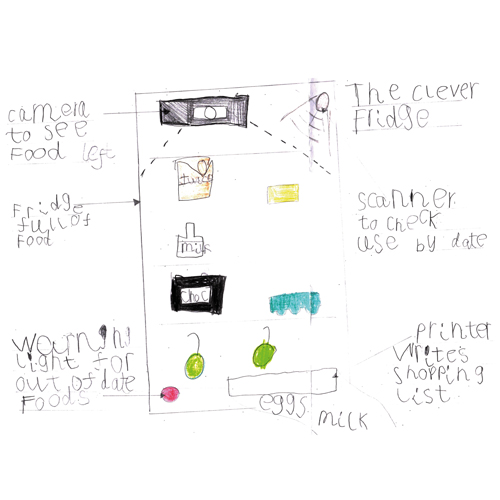 The clever
fridge
camera
to see
food left
Fridge
full of
food
scanner
to check
use by date
milk
choc
Warning
light for
out of date
foods
printer
writes
shopping
list
eggs
milk